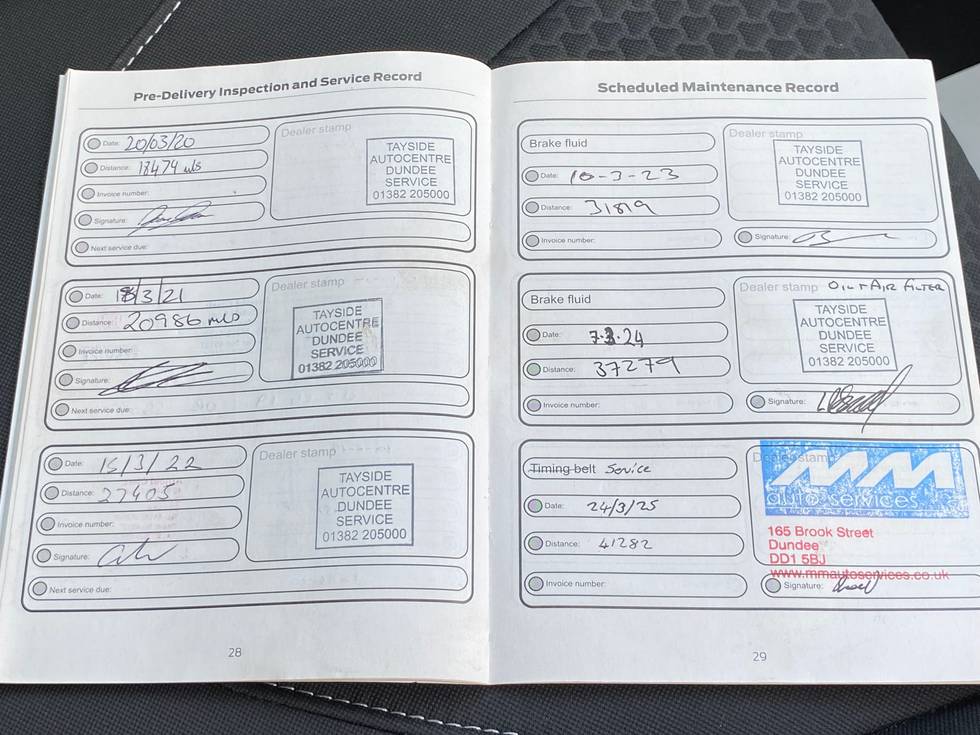 Pre-Delivery Inspection and Service Record
Date: 20/03/20
Distance: 18474 mls
Invoice number:
Signature:
Next service due:
Dealer stamp
TAYSIDE
AUTOCENTRE
DUNDEE
SERVICE
01382 205000
Date: 18/3/21
Distance: 20986 mls
Invoice number:
Signature:
Next service due:
Dealer stamp
TAYSIDE
AUTOCENTRE
DUNDEE
SERVICE
01382 205000
Date: 15/3/22
Distance: 27405
Invoice number:
Signature:
Next service due:
Dealer stamp
TAYSIDE
AUTOCENTRE
DUNDEE
SERVICE
01382 205000
28
Scheduled Maintenance Record
Brake fluid
Date: 10-3-23
Distance: 31819
Invoice number:
Dealer stamp
TAYSIDE
AUTOCENTRE
DUNDEE
SERVICE
01382 205000
Signature:
Brake fluid
Date: 7.3.24
Distance: 37279
Invoice number:
Dealer stamp OIL + AIR FILTER
TAYSIDE
AUTOCENTRE
DUNDEE
SERVICE
01382 205000
Signature:
Timing belt Service
Date: 24/3/25
Distance: 41282
Invoice number:
Dealer stamp
MM
auto services
165 Brook Street
Dundee
DD1 5BJ
www.mmautoservices.co.uk
Signature:
29